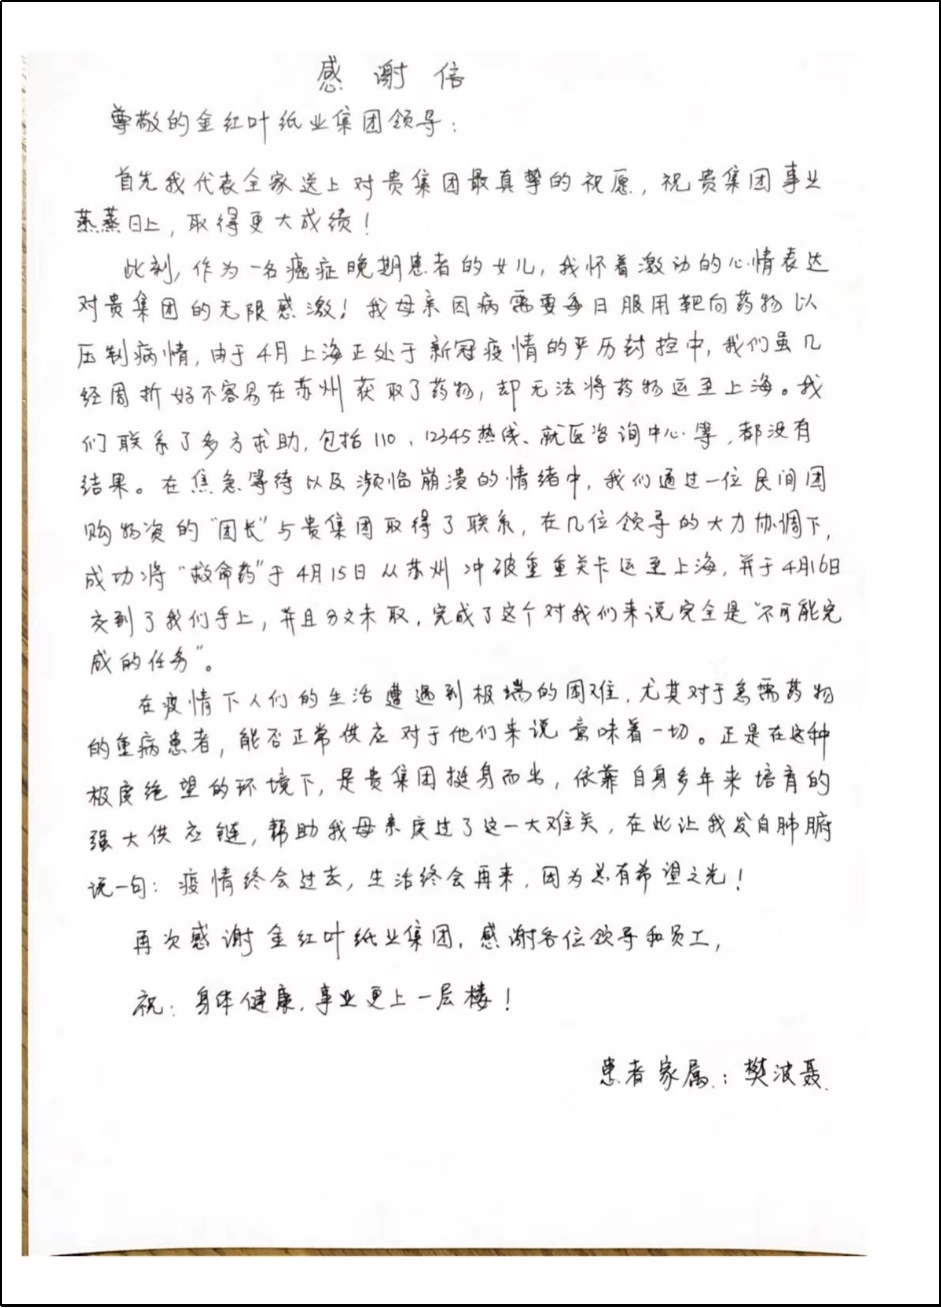 感谢信
尊敬的金红叶纸业集团领导：
首先我代表全家送上对贵集团最真挚的祝愿，祝贵集团事业
蒸蒸日上，取得更大成绩！
此刻，作为一名癌症晚期患者的女儿，我怀着激动的心情表达
对贵集团的无限感激！我母亲因病需要每日服用靶向药物以
压制病情，由于4月上海正处于新冠疫情的严历封控中，我们虽几
经周折好不容易在苏州获取了药物，却无法将药物运至上海。我
们联系了多方求助，包括110、12345热线、就医咨询中心等，都没有
结果。在焦急等待以及濒临崩溃的情绪中，我们通过一位民间团
购物资的“团长”与贵集团取得了联系，在几位领导的大力协调下，
成功将“救命药”于4月15日从苏州冲破重重关卡运至上海，并于4月16日
交到了我们手上，并且分文未取，完成了这个对我们来说完全是“不可能完
成的任务”。
在疫情下人们的生活遭遇到极端的困难，尤其对于急需药物
的重病患者，能否正常供应对于他们来说意味着一切。正是在这种
极度绝望的环境下，是贵集团挺身而出，依靠自身多年来培育的
强大供应链，帮助我母亲度过了这一大难关，在此让我发自肺腑
说一句：疫情终会过去，生活终会再来，因为总有希望之光！
再次感谢金红叶纸业集团，感谢各位领导和员工，
祝：身体健康，事业更上一层楼！
患者家属：樊波聂